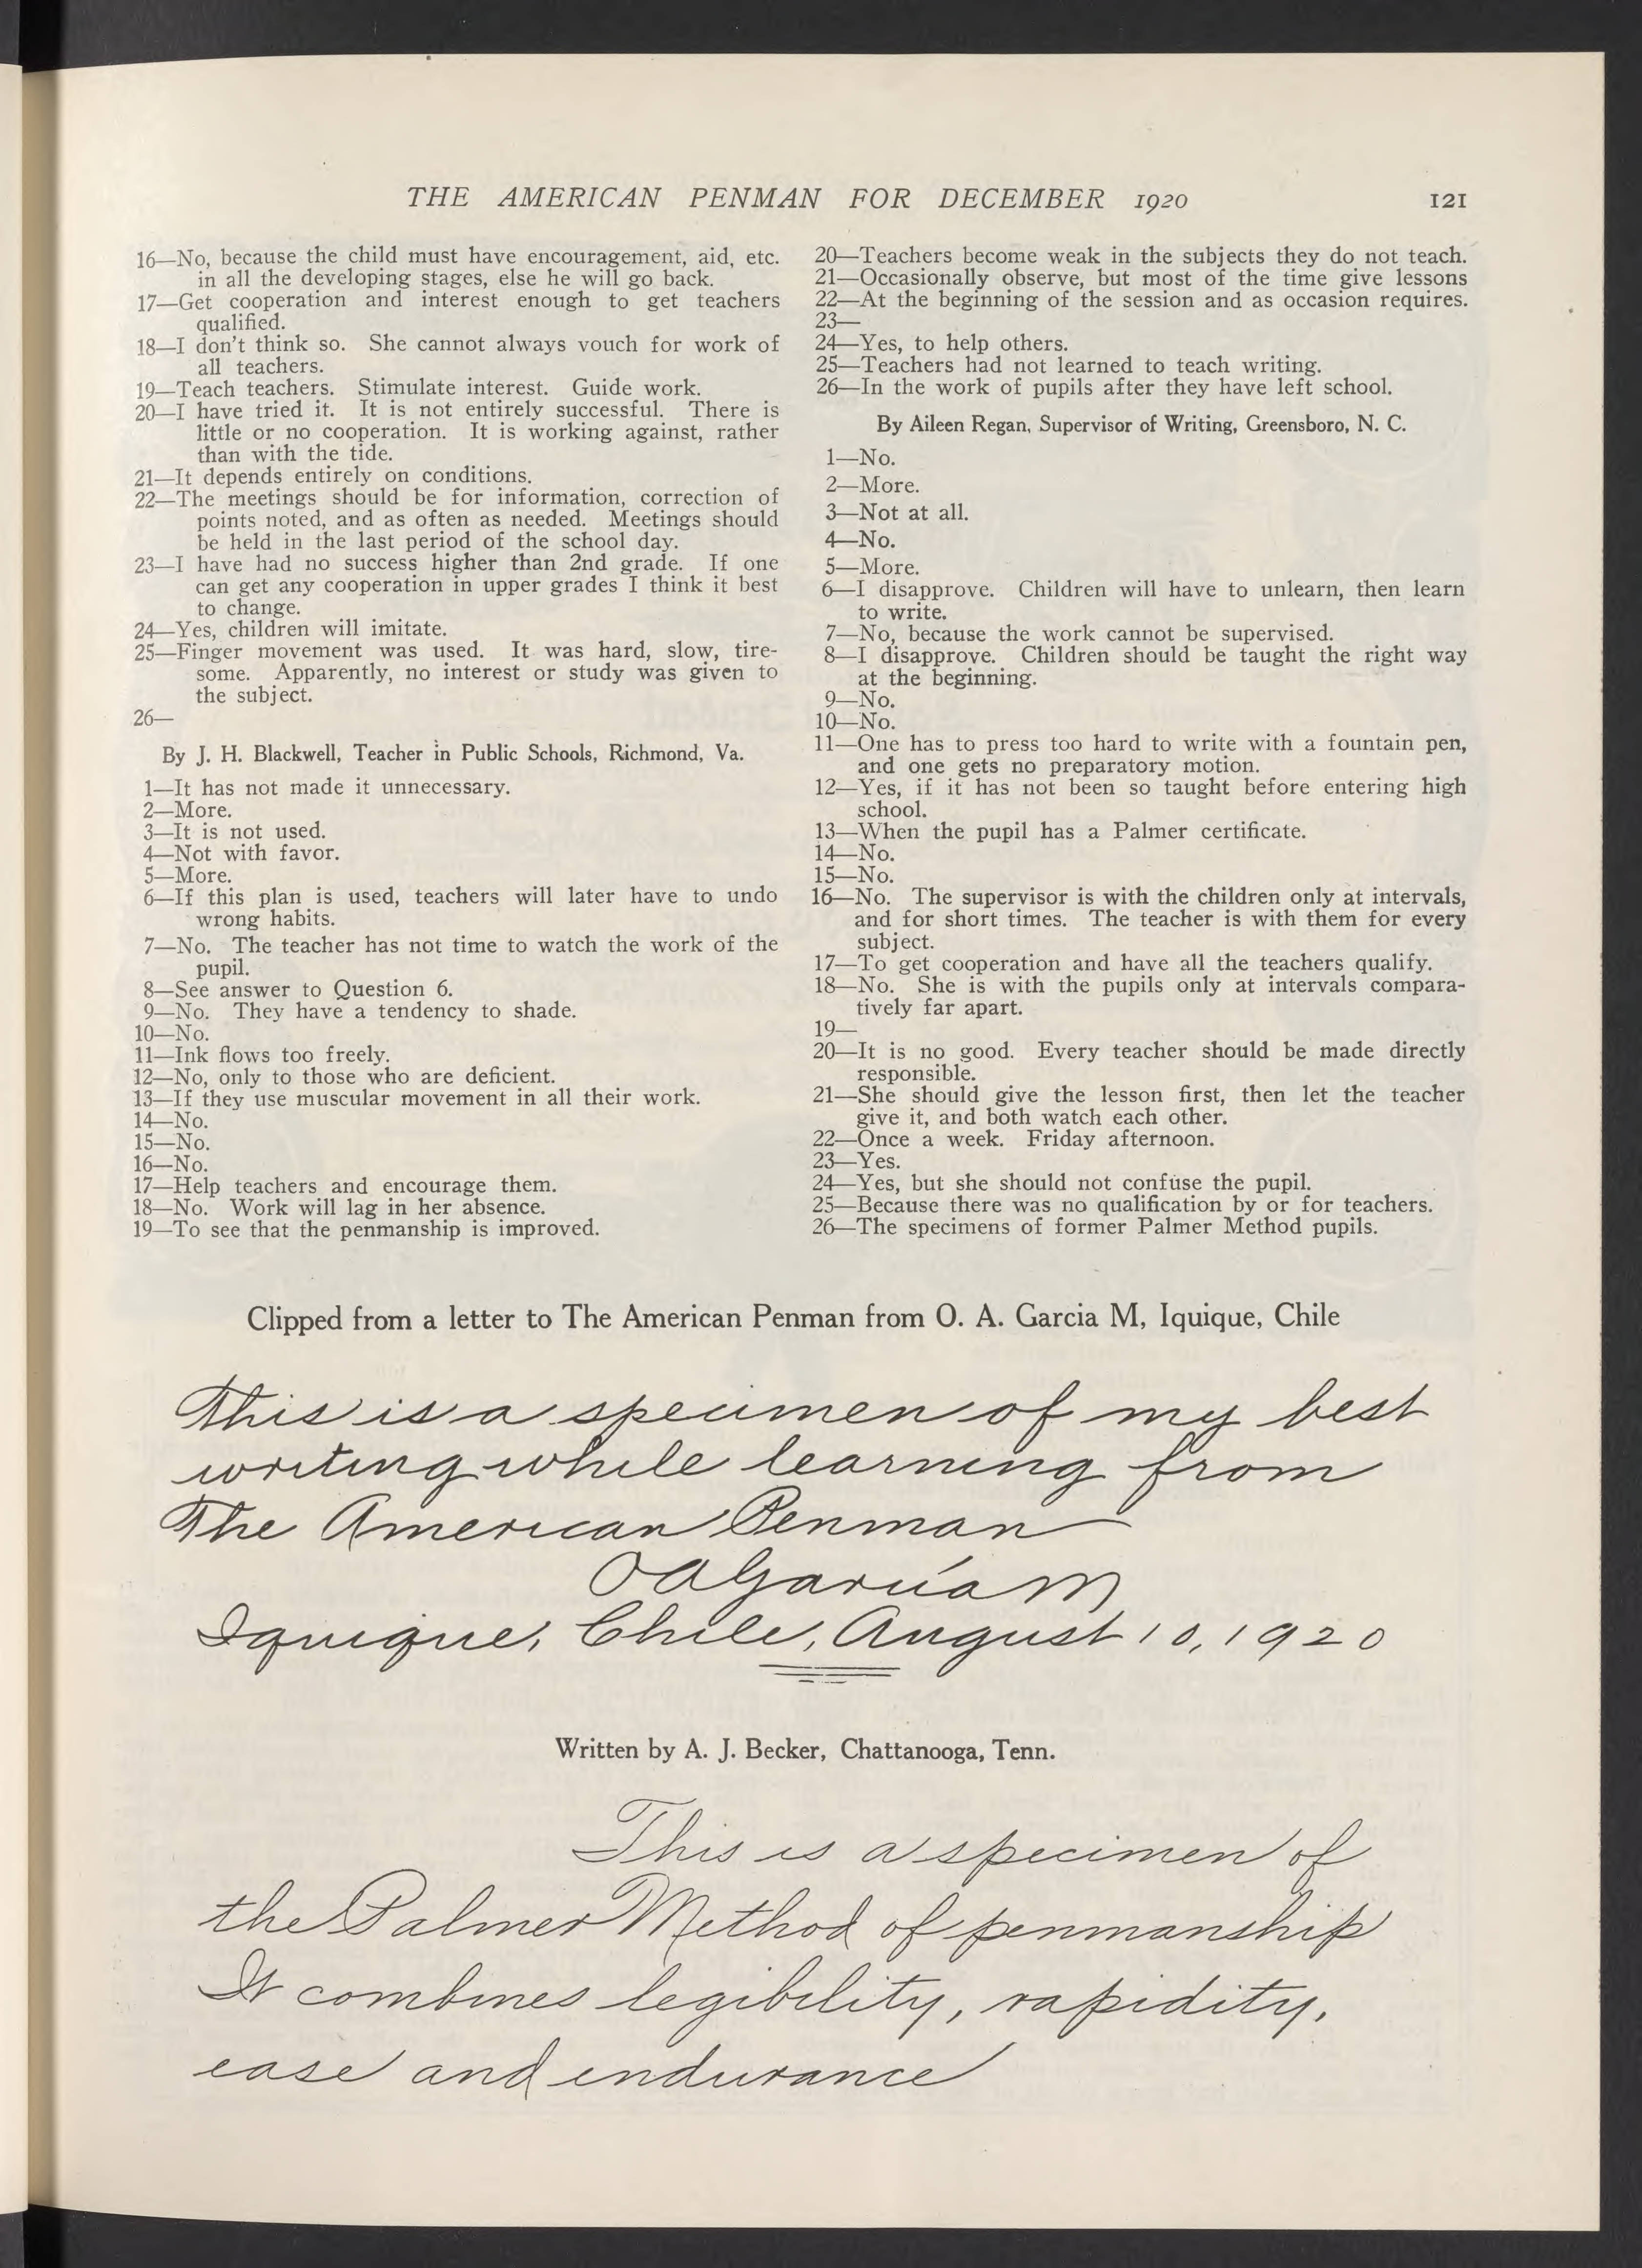 THE AMERICAN PENMAN FOR DECEMBER 1920 121
16—No, because the child must have encouragement, aid, etc.
in all the developing stages, else he will go back.
17—Get cooperation and interest enough to get teachers
qualified.
18—I don't think so. She cannot always vouch for work of
all teachers.
19—Teach teachers. Stimulate interest. Guide work.
20—I have tried it. It is not entirely successful. There is
little or no cooperation. It is working against, rather
than with the tide.
21—It depends entirely on conditions.
22—The meetings should be for information, correction of
points noted, and as often as needed. Meetings should
be held in the last period of the school day.
23—I have had no success higher than 2nd grade. If one
can get any cooperation in upper grades I think it best
to change.
24—Yes, children will imitate.
25—Finger movement was used. It was hard, slow, tire-
some. Apparently, no interest or study was given to
the subject.
26—
By J. H. Blackwell, Teacher in Public Schools, Richmond, Va.
1—It has not made it unnecessary.
2—More.
3—It is not used.
4—Not with favor.
5—More.
6—If this plan is used, teachers will later have to undo
wrong habits.
7—No. The teacher has not time to watch the work of the
pupil.
8—See answer to Question 6.
9—No. They have a tendency to shade.
10—No.
11—Ink flows too freely.
12—No, only to those who are deficient.
13—If they use muscular movement in all their work.
14—No.
15—No.
16—No.
17—Help teachers and encourage them.
18—No. Work will lag in her absence.
19—To see that the penmanship is improved.
20—Teachers become weak in the subjects they do not teach.
21—Occasionally observe, but most of the time give lessons
22—At the beginning of the session and as occasion requires.
23—
24—Yes, to help others.
25—Teachers had not learned to teach writing.
26—In the work of pupils after they have left school.
By Aileen Regan, Supervisor of Writing, Greensboro, N. C.
1—No.
2—More.
3—Not at all.
4—No.
5—More.
6—I disapprove. Children will have to unlearn, then learn
to write.
7—No, because the work cannot be supervised.
8—I disapprove. Children should be taught the right way
at the beginning.
9—No.
10—No.
11—One has to press too hard to write with a fountain pen,
and one gets no preparatory motion.
12—Yes, if it has not been so taught before entering high
school.
13—When the pupil has a Palmer certificate.
14—No.
15—No.
16—No. The supervisor is with the children only at intervals,
and for short times. The teacher is with them for every
subject.
17—To get cooperation and have all the teachers qualify.
18—No. She is with the pupils only at intervals compara-
tively far apart.
19—
20—It is no good. Every teacher should be made directly
responsible.
21—She should give the lesson first, then let the teacher
give it, and both watch each other.
22—Once a week. Friday afternoon.
23—Yes.
24—Yes, but she should not confuse the pupil.
25—Because there was no qualification by or for teachers.
26—The specimens of former Palmer Method pupils.
Clipped from a letter to The American Penman from O. A. Garcia M, Iquique, Chile
This is a specimen of my best
writing while learning from
The American Penman
O A García M
Iquique, Chile, August 10, 1920
Written by A. J. Becker, Chattanooga, Tenn.
This is a specimen of
the Palmer Method of penmanship
It combines legibility, rapidity,
ease and endurance